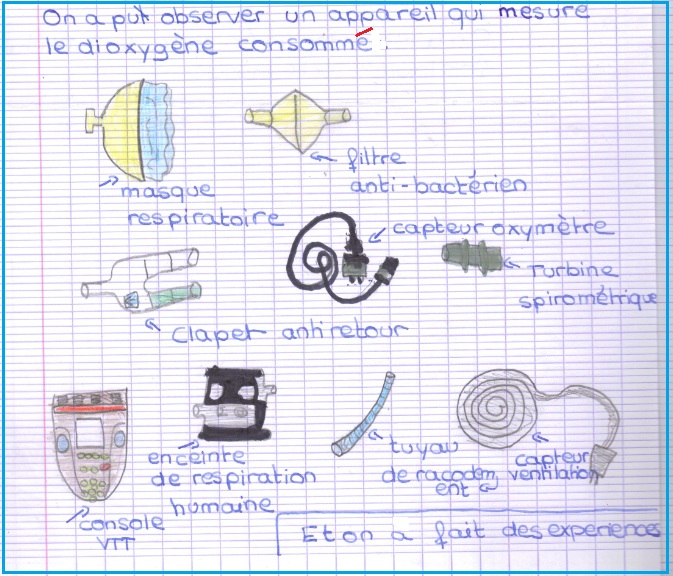 On a pût observer un appareil qui mesure
le dioxygène consommé :
filtre
anti-bactérien
masque
respiratoire
capteur oxymètre
Turbine
spirométrique
clapet antiretour
enceinte
de respiration
humaine
tuyau
de racodem
ent
capteur
ventilation
console
VTT
Et on a fait des experiences